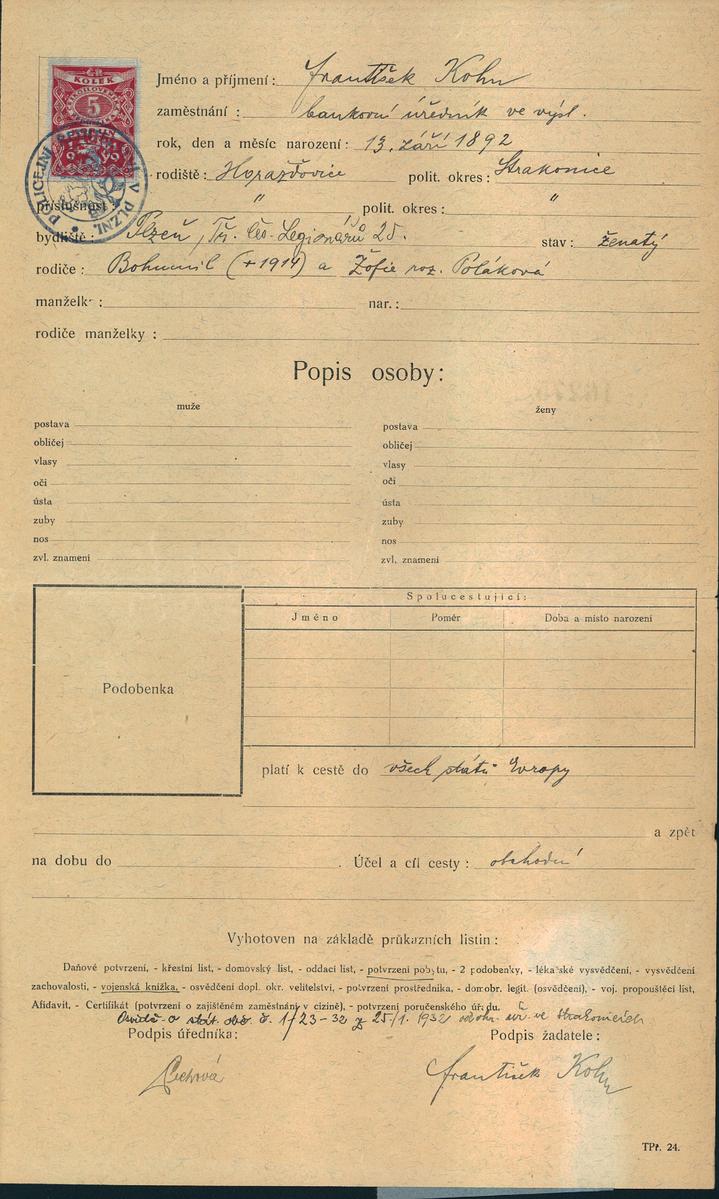 KOLEK
5
POLICEJNÍ V PLZNI
Jméno a příjmení : František Kohn
zaměstnání : bankovní úředník ve výsl.
rok, den a měsíc narození : 13. září 1892
rodiště : Horažďovice polit. okres : Strakonice
příslušnost " polit. okres : "
bydliště : Plzeň, Tř. čs. Legionářů 25. stav : ženatý
rodiče : Bohumil (+1914) a Žofie roz. Poláková
manželk : nar. :
rodiče manželky :
Popis osoby:
muže ženy
postava postava
obličej obličej
vlasy vlasy
oči oči
ústa ústa
zuby zuby
nos nos
zvl. znamení zvl. znamení
Spolucestující:
Jméno Poměr Doba a místo narození
Podobenka
platí k cestě do všech států Evropy
a zpět
na dobu do . Účel a cíl cesty : obchodní
Vyhotoven na základě průkazních listin :
Daňové potvrzení, - křestní list, - domovský list, - oddací list, - potvrzení pobytu, - 2 podobenky, - lékařské vysvědčení, - vysvědčení
zachovalosti, - vojenská knížka, - osvědčení dopl. okr. velitelství, - potvrzení prostředníka, - dom. obr. legit. (osvědčení), - voj. propouštěcí list,
Afidavit, - Certifikát (potvrzení o zajištěném zaměstnání v cizině), - potvrzení poručenského úřadu.
Osvěd. o stát. obč. č. 1/23-32 z 25./1. 1932 od okr. úř. ve Strakonicích
Podpis úředníka : Podpis žadatele :
František Kohn
TPř. 24.